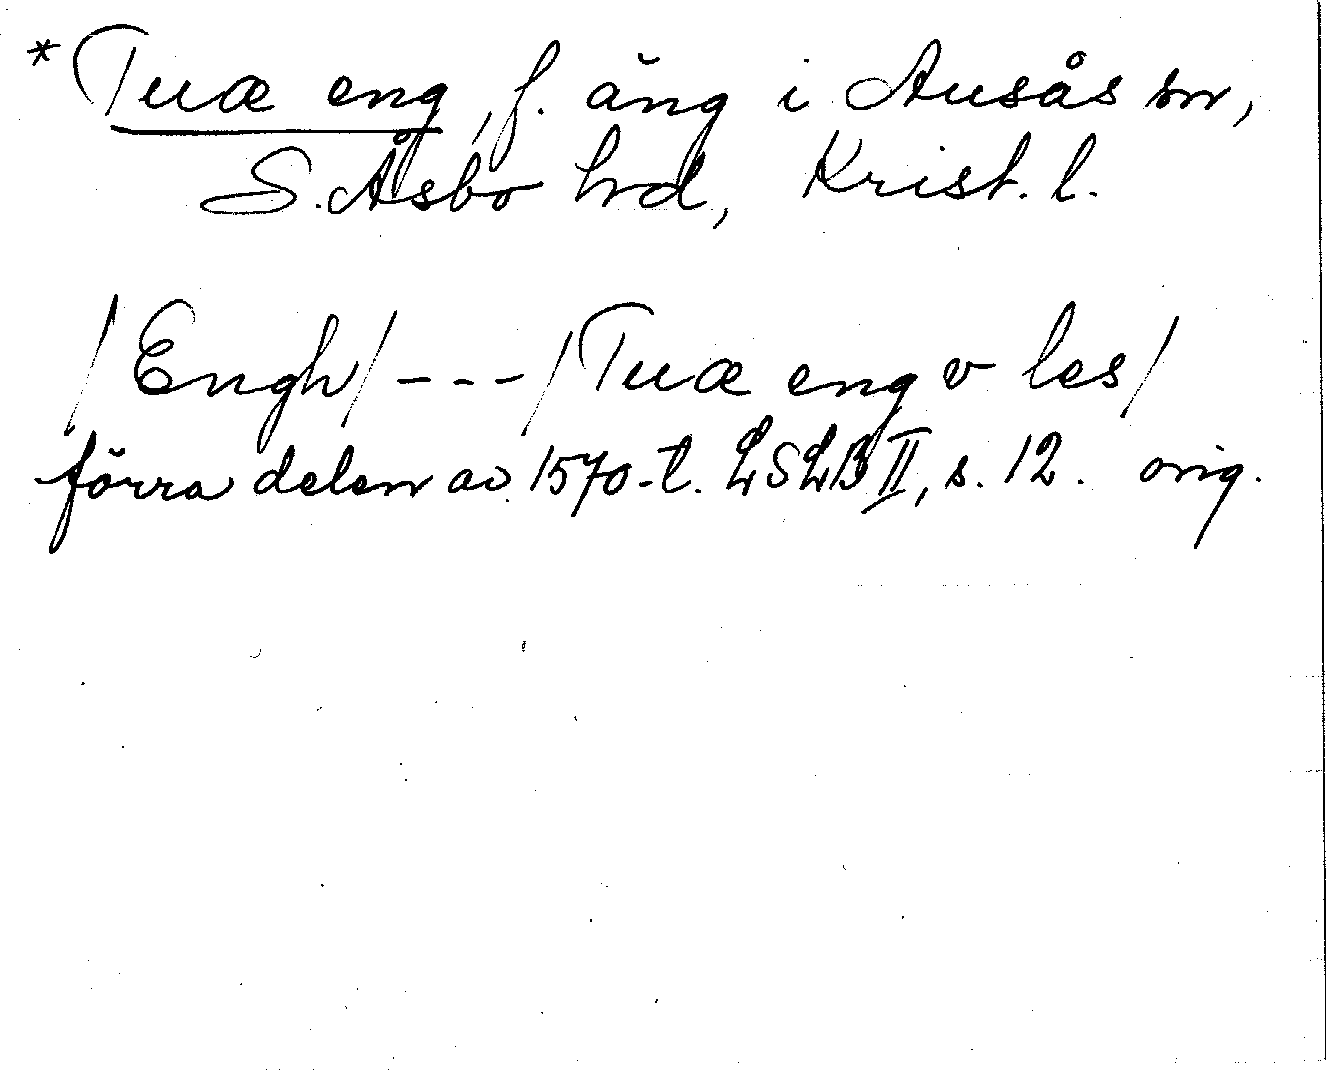 *Tuæ eng, f. äng i Ausås sn,
S. Åsbo hd, Krist. l.
/Engh/ - - - /Tuæ eng v les/
förra delen av 1570-t. LSLB II, s. 12. orig.